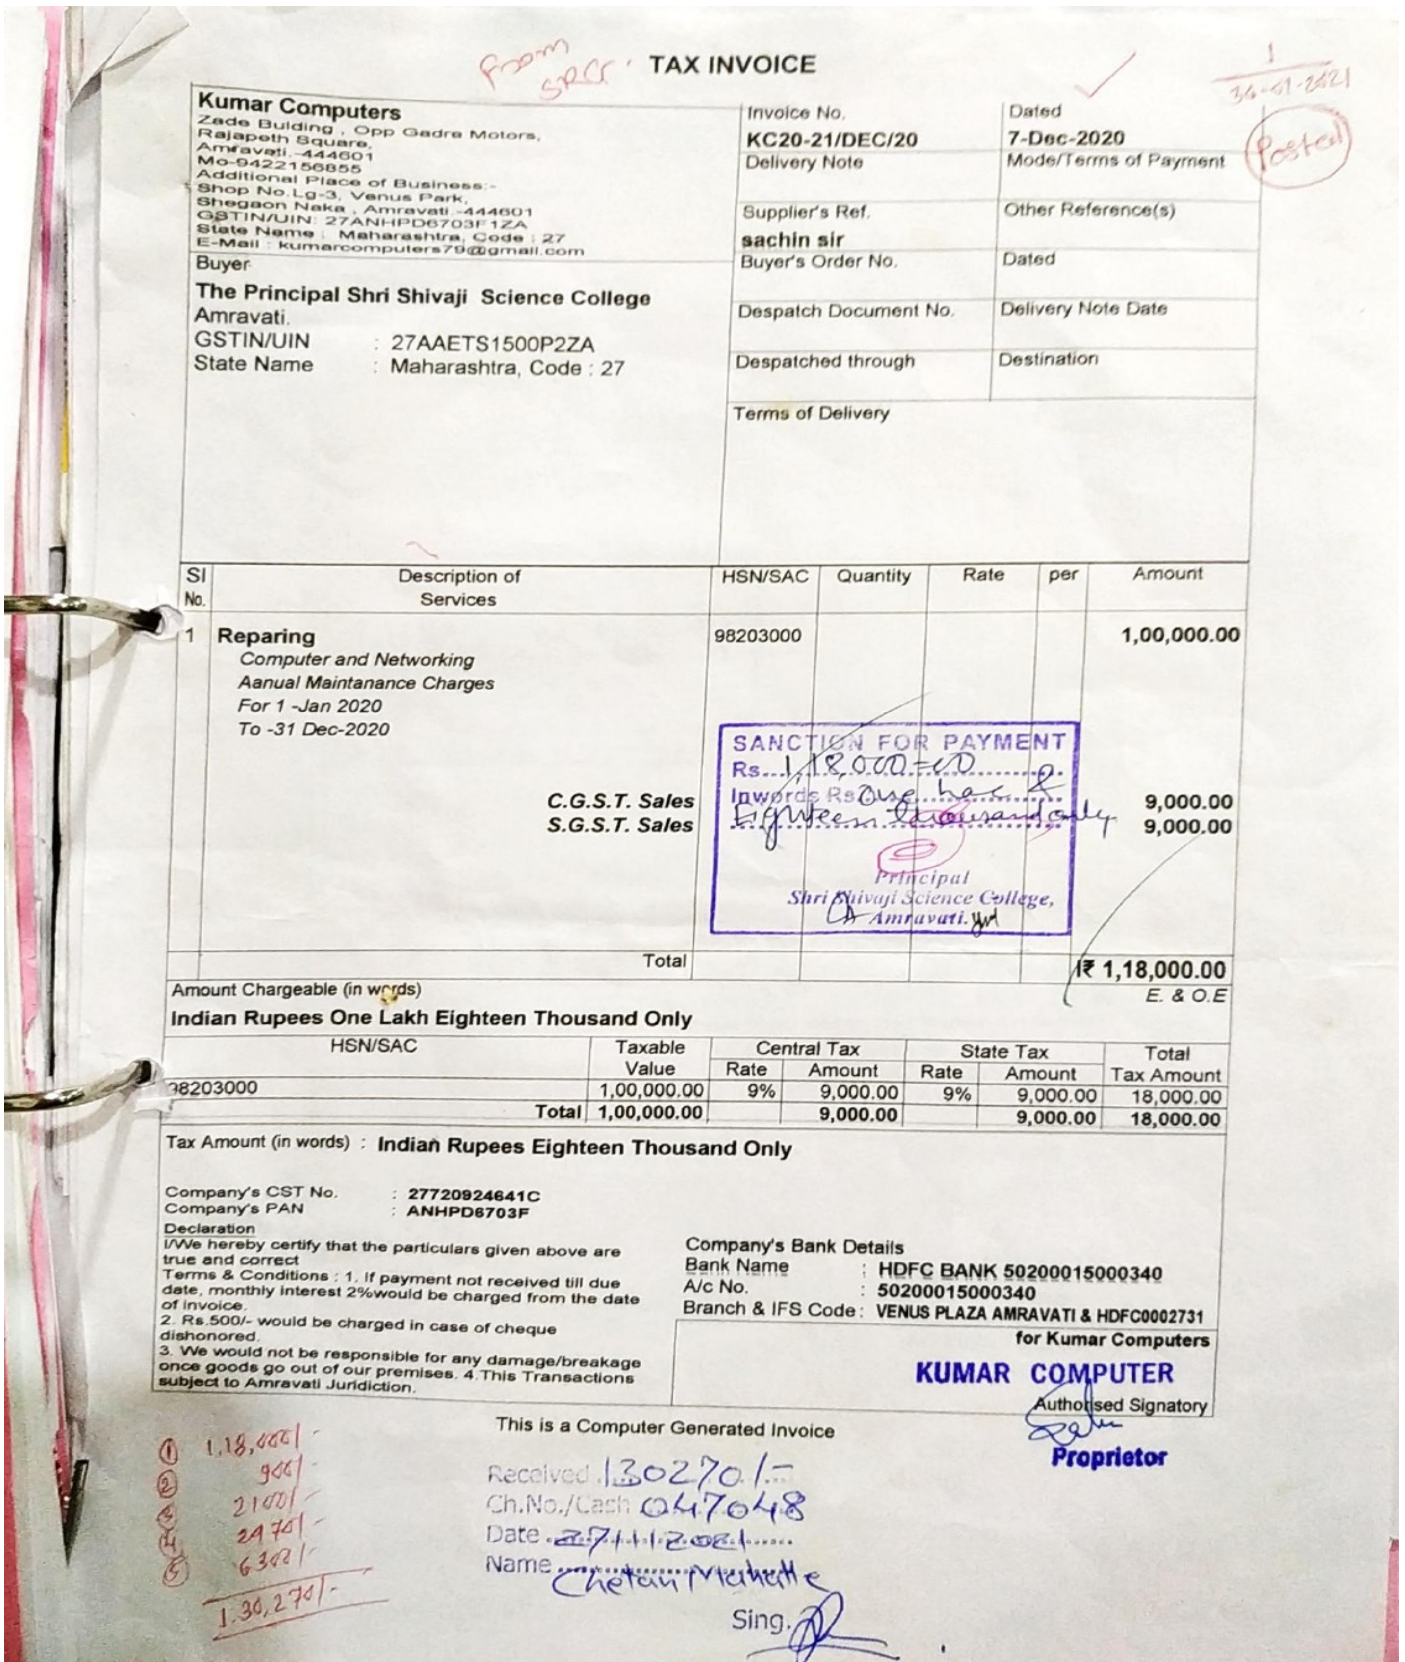 From
SRCC.
TAX INVOICE
1
Posted
Kumar Computers
Zade Bulding , Opp Gadre Motors,
Rajapeth Square,
Amravati.-444601
Mo-9422156855
Additional Place of Business:-
Shop No.Lg-3, Venus Park,
Shegaon Naka , Amravati.-444601
GSTIN/UIN: 27ANHPD6703F1ZA
State Name : Maharashtra, Code : 27
E-Mail : kumarcomputers79@gmail.com
Invoice No.
KC20-21/DEC/20
Dated
7-Dec-2020
Delivery Note
Mode/Terms of Payment
Supplier's Ref.
sachin sir
Other Reference(s)
Buyer
The Principal Shri Shivaji Science College
Amravati.
GSTIN/UIN : 27AAETS1500P2ZA
State Name : Maharashtra, Code : 27
Buyer's Order No.
Dated
Despatch Document No.
Delivery Note Date
Despatched through
Destination
Terms of Delivery
Sl No. Description of Services HSN/SAC Quantity Rate per Amount
1 Reparing 98203000 1,00,000.00
Computer and Networking
Aanual Maintanance Charges
For 1 -Jan 2020
To -31 Dec-2020
SANCTION FOR PAYMENT
Rs. 1,18,000=00
Inwords Rs. One lac &
Eighteen thousand only
Principal
Shri Shivaji Science College,
Amravati.
C.G.S.T. Sales 9,000.00
S.G.S.T. Sales 9,000.00
Total ₹ 1,18,000.00
Amount Chargeable (in words) E. & O.E
Indian Rupees One Lakh Eighteen Thousand Only
HSN/SAC Taxable Value Central Tax State Tax Total Tax Amount
Rate Amount Rate Amount
98203000 1,00,000.00 9% 9,000.00 9% 9,000.00 18,000.00
Total 1,00,000.00 9,000.00 9,000.00 18,000.00
Tax Amount (in words) : Indian Rupees Eighteen Thousand Only
Company's CST No. : 27720924641C
Company's PAN : ANHPD6703F
Declaration
I/We hereby certify that the particulars given above are
true and correct
Terms & Conditions : 1. If payment not received till due
date, monthly interest 2%would be charged from the date
of invoice.
2. Rs.500/- would be charged in case of cheque
dishonored.
3. We would not be responsible for any damage/breakage
once goods go out of our premises. 4.This Transactions
subject to Amravati Juridiction.
Company's Bank Details
Bank Name : HDFC BANK 50200015000340
A/c No. : 50200015000340
Branch & IFS Code : VENUS PLAZA AMRAVATI & HDFC0002731
for Kumar Computers
KUMAR COMPUTER
Authorised Signatory
Proprietor
This is a Computer Generated Invoice
① 1,18,000/-
② 900/-
③ 2100/-
4 2970/-
⑤ 6300/-
1,30,270/-
Received 130270/-
Ch.No./Cash 047048
Date 27/1/2021
Name Chetan Mahatte
Sing.